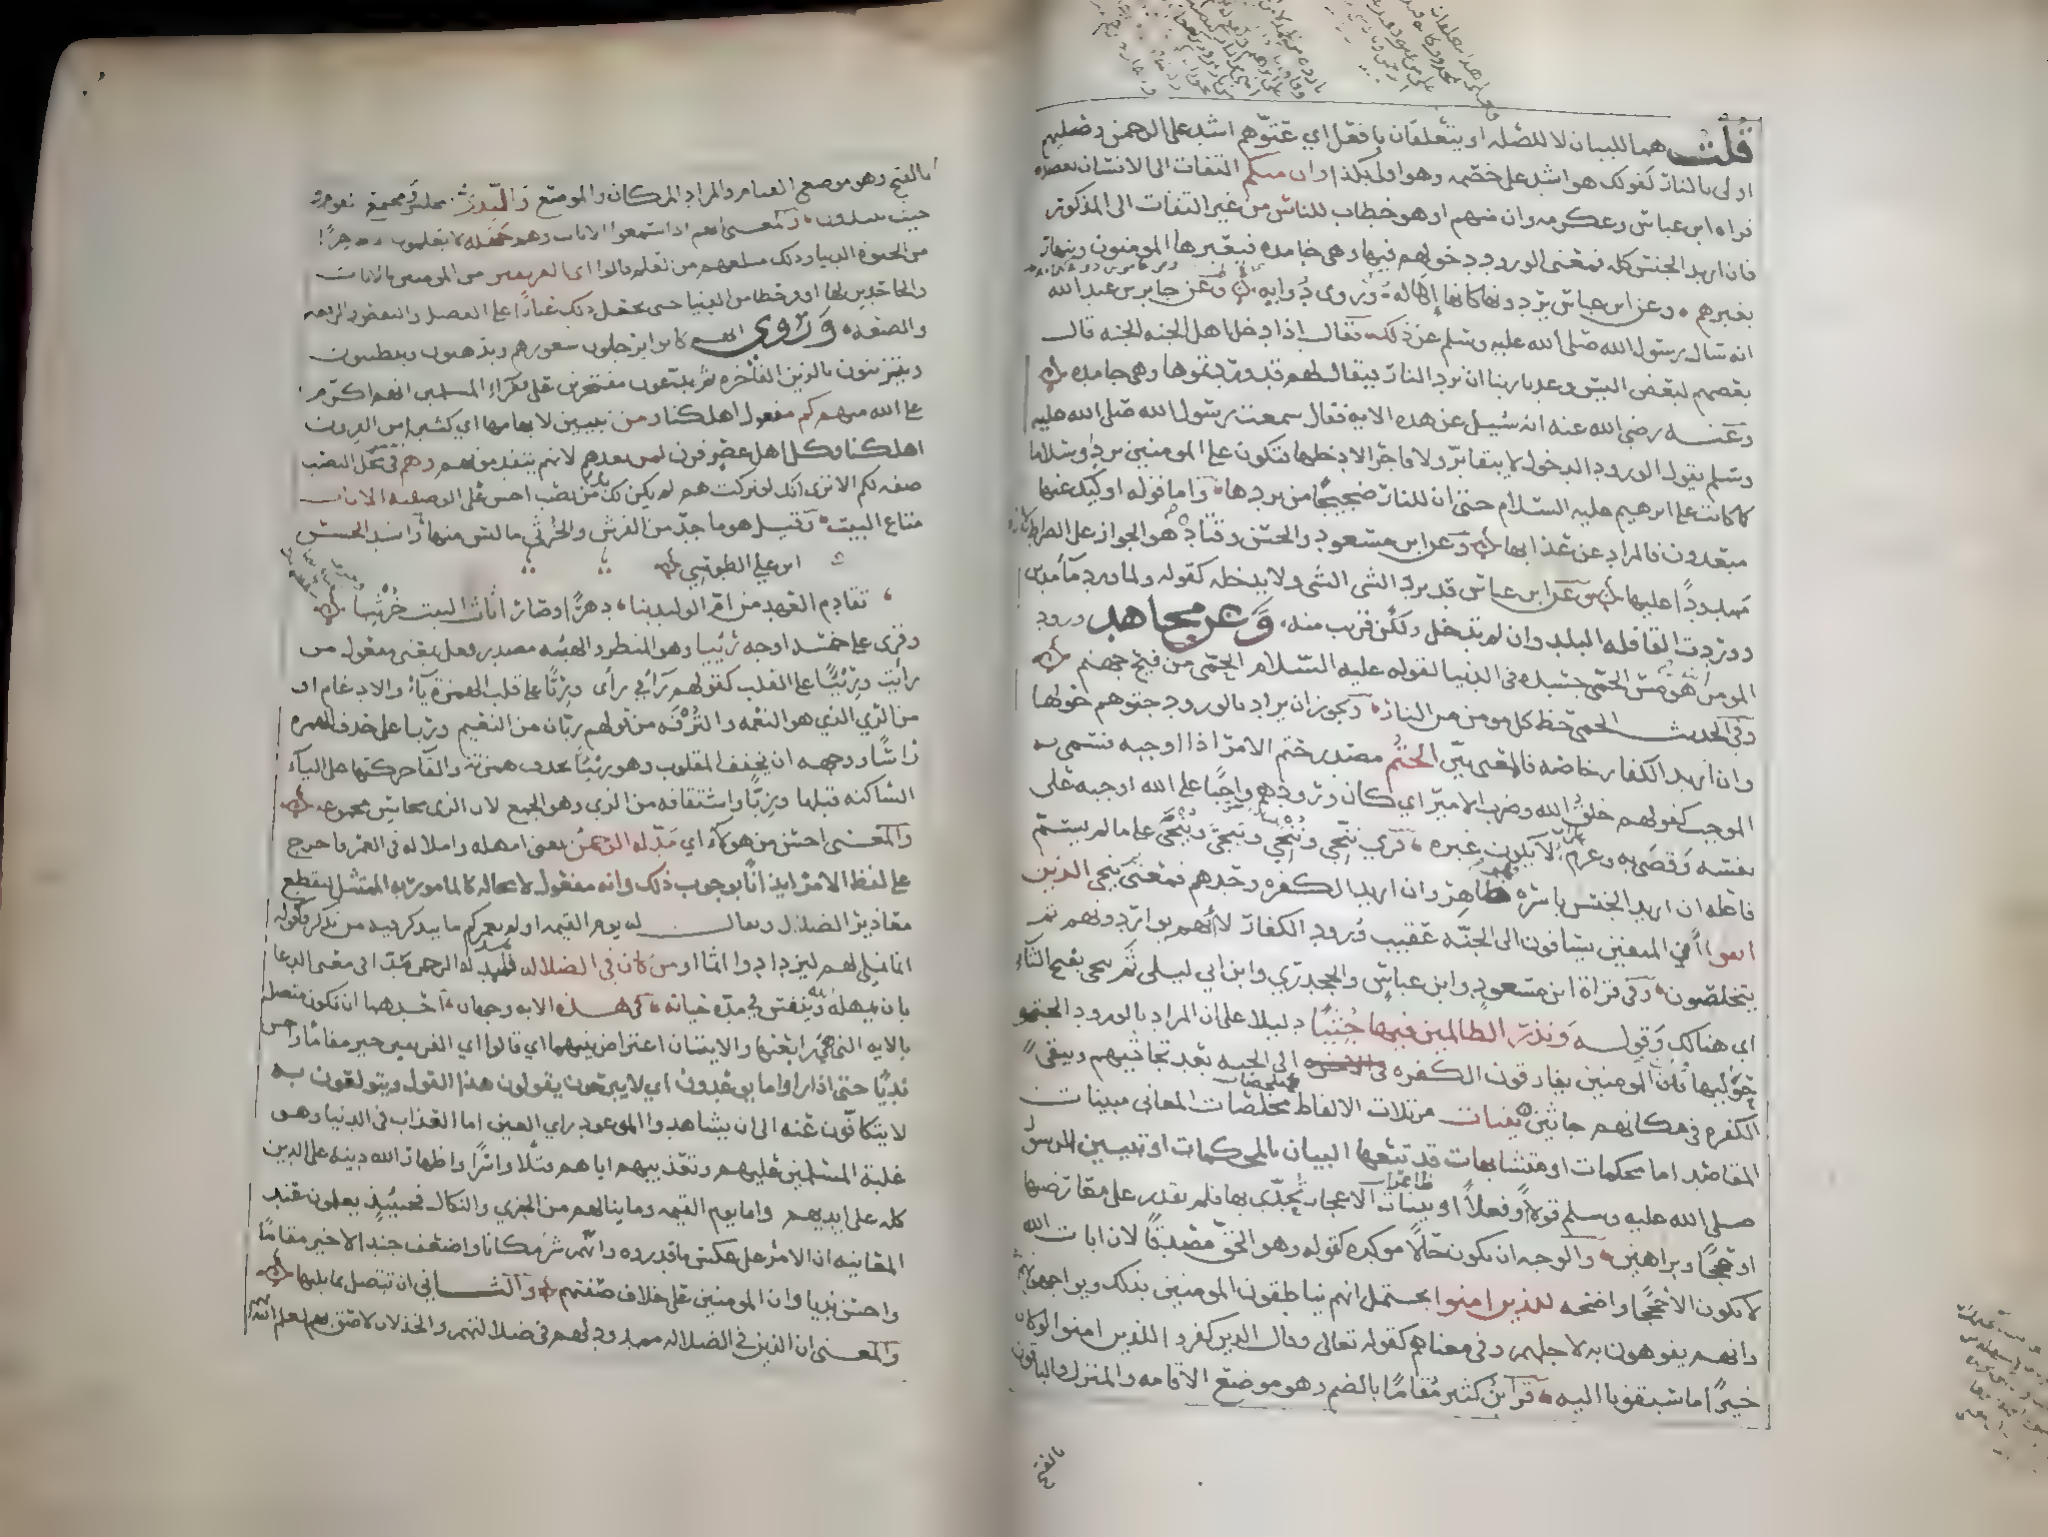 قلت هما للبيان لا للصله او يتعلقان بافعل اي عتوهم اشد على الرحمن وصليهم
اولى بالنار كقولك هو اشد على خصمه وهو اولى بكذا وان منكم التفات الى الانسان يعضده
قراه ابن عباس وعكرمه وان منهم او هو خطاب للناس من غير التفات الى المذكور
فان اريد الجنس كله فمعنى الورود دخولهم فيها وهي خامده فيعبرها المومنون وتنهار
بغيرهم وعن ابن عباس يردونها كانها اهاله وروي دوايه وعن جابر بن عبد الله
انه سال رسول الله صلى الله عليه وسلم عن ذلك فقال اذا دخل اهل الجنه الجنه قال
بعضهم لبعض اليس وعدنا ربنا ان نرد النار فيقال لهم قد وردتموها وهي خامده
وعنه رضي الله عنه انه سئل عن هذه الايه فقال سمعت رسول الله صلى الله عليه
وسلم يقول الورود الدخول لا يبقى بر ولا فاجر الا دخلها فتكون على المومنين بردا وسلاما
كما كانت على ابرهيم عليه السلام حتى ان للنار ضجيجا من بردها واما قوله اوليك عنها
مبعدون فالمراد عن عذابها وعن ابن مسعود والحسن وقتاده هو الجواز على الصراط لان
ممدود عليها وعن ابن عباس قد يرد الشي الشي ولا يدخله كقوله ولما ورد ما مدين
ووردت القافله البلد وان لم تدخل ولكن قربت منه وعن مجاهد ورود
المومن النار هو مس الحمى جسده في الدنيا لقوله عليه السلام الحمى من فيح جهنم
وفي الحديث الحمى حظ كل مومن من النار ويجوز ان يراد بالورود جثوهم حولها
وان اريد الكفار خاصه فالمعنى بين الحتم مصدر حتم الامر اذا اوجبه فسمى به
الموجب كقولهم خلق الله وضرب الامير اي كان ورودهم واجبا على الله اوجبه على
نفسه وقضى به وعزم على الا يكون غيره قري ننجي وننجي وينجي وينجى على ما لم يسم
فاعله ان اريد الجنس باسره فهو ظاهر وان اريد الكفره وحدهم فمعنى ننجي الذين
اتقوا ان المتقين يساقون الى الجنه عقيب ورود الكفار لا انهم يواردونهم ثم
يتخلصون وفي قراة ابن مسعود وابن عباس والجحدري وابن ابي ليلى ثم ننجي بفتح الثاء
اي هنالك وقوله ونذر الظالمين فيها جثيا دليل على ان المراد بالورود الجثو
حواليها وان المومنين يفارقون الكفره الى الجنه بعد تجاثيهم ويبقى
الكفره في مكانهم جاثين بينات مرتلات الالفاظ ملخصات المعاني مبينات
المقاصد اما محكمات او متشابهات قد تبعها البيان بالمحكمات او تبيين الرسول
صلى الله عليه وسلم قولا وفعلا او ظاهرات الاعجاز تحدي بها فلم يقدر على معارضتها
او حججا وبراهين والوجه ان تكون حالا موكده كقوله وهو الحق مصدقا لان ايات الله
لا تكون الا حججا واضحه للذين امنوا يحتمل انهم يناطقون المومنين بذلك ويواجهونهم
وانهم يفوهون به لاجلهم وفي معناهم كقوله تعالى وقال الذين كفروا للذين امنوا لو كان
خيرا ما سبقونا اليه قرا بن كثير مقاما بالضم وهو موضع الاقامه والمنزل والباقون
بالفتح
بالفتح وهو موضع القيام والمراد المكان والموضع والندي مجلس ومجتمع
والمعنى انهم اذا سمعوا الايات وهم جهله لا يعلمون الا ظاهرا
من الحيوة الدنيا وذلك مبلغهم من العلم قالوا اي الفريقين من المومنين بالايات
والجاحدين لها اوفر حظا من الدنيا حتى يجعل ذلك عيارا على الفضل والنقص والرفعه
والضعه وروي انهم كانوا يرجلون شعورهم ويدهنون ويتطيبون
ويتزينون بالزين الفاخره ثم يدعون مفتخرين على فقراء المسلمين انهم اكرم
على الله منهم كم مفعول اهلكنا ومن تبيين لابهامها اي كثيرا من القرون
اهلكنا وكل اهل عصر قرن لمن بعدهم لانهم يتقدمونهم وهم في محل النصب
صفه لكم الا ترى انك لو تركت هم لم يكن لك بد من نصب احسن على الوصفيه الاثاث
متاع البيت وقيل هو ما جد من الفرش والخرثي ما لبس منها وانشد الحسن
ابن علي الطوسي
تقادم العهد من ام الوليد بنا دهرا وصار اثاث البيت خرثيا
وقرى على خمسه اوجه رئيا وهو المنظر والهيئه مصدر فعل بمعنى مفعول من
رايت وريئا على القلب كقولهم راء في رأى وريا على قلب الهمزة ياء والادغام او
من الري الذي هو النعمه والترفه من قولهم ريان من النعيم وريا على حذف الهمزه
راسا ووجهه ان يخفف المقلوب وهو ريئا بحذف همزته والقا حركتها على الياء
الساكنه قبلها وزيا واشتقاقه من الزي وهو الجمع لان الزي محاسن مجموعه
والمعنى احسن من هولاء اي مد له الرحمن يعني امهله واملا له في العمر فاخرج
على لفظ الامر ايذانا بوجوب ذلك وانه مفعول لا محاله كالمامور به الممتثل ليقطع
معاذير الضلال ويقال له يوم القيمه اولم نعمركم ما يتذكر فيه من تذكر وكقوله
انما نملي لهم ليزدادوا اثما او من كان في الضلاله فليمدد له الرحمن مدا في معنى الدعا
بان يمهله وينفس في مدة حياته في هذه الايه وجهان احدهما ان تكون متصله
بالايه التي هي رابعتها والايتان اعتراض بينهما اي قالوا اي الفريقين خير مقاما واحسن
نديا حتى اذا راوا ما يوعدون اي لا يبرحون يقولون هذا القول ويتولعون به
لا يتكافون عنه الى ان يشاهدوا الموعود راي العين اما العذاب في الدنيا وهو
غلبة المسلمين عليهم وتعذيبهم اياهم قتلا واسرا واظهار الله دينه على الدين
كله على ايديهم واما يوم القيمه وما ينالهم من الخزي والنكال فحينئذ يعلمون عند
المعاينه ان الامر على عكس ما قدروه وانهم شر مكانا واضعف جندا لا خير مقاما
واحسن نديا وان المومنين على خلاف صفتهم والثاني ان تتصل بما يليها
والمعنى ان الذين في الضلاله ممدود لهم في ضلالتهم والخذلان لاصق بهم لعلم الله بهم